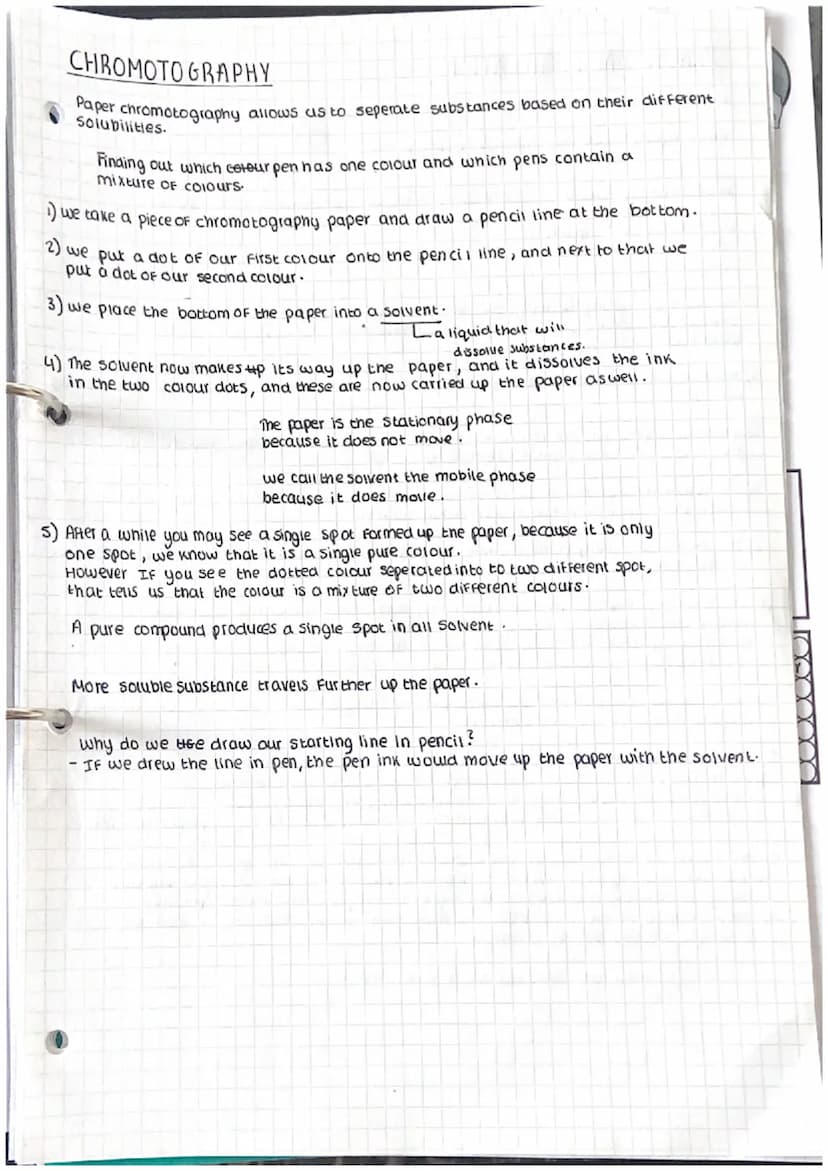 CHROMOTOGRAPHY
Paper chromotography allows us to seperate substances based on their different
solubilities.
Finding out which colour pen has one colour and which pens contain a
mixture of colours.
1) we take a piece of chromotography paper and draw a pencil line at the bottom.
2) we put a dot of our first colour onto the pencil line, and next to that we
put a dot of our second colour.
3) we place the bottom of the paper into a solvent.
a liquid that will
dissolve substances.
4) The solvent now makes up its way up the paper, and it dissolves the ink
in the two colour dots, and these are now carried up the paper aswell.
The paper is the stationary phase
because it does not move.
we call the solvent the mobile phase
because it does move.
5) After a while you may see a single spot formed up the paper, because it is only
one spot, we know that it is a single pure colour.
However If you see the dotted colour seperated into to two different spot,
that tells us that the colour is a mixture of two different colours.
A pure compound produces a single spot in all solvent.
More soluble substance travels further up the paper.
Why do we use draw our starting line in pencil?
- If we drew the line in pen, the pen ink would move up the paper with the solvent.